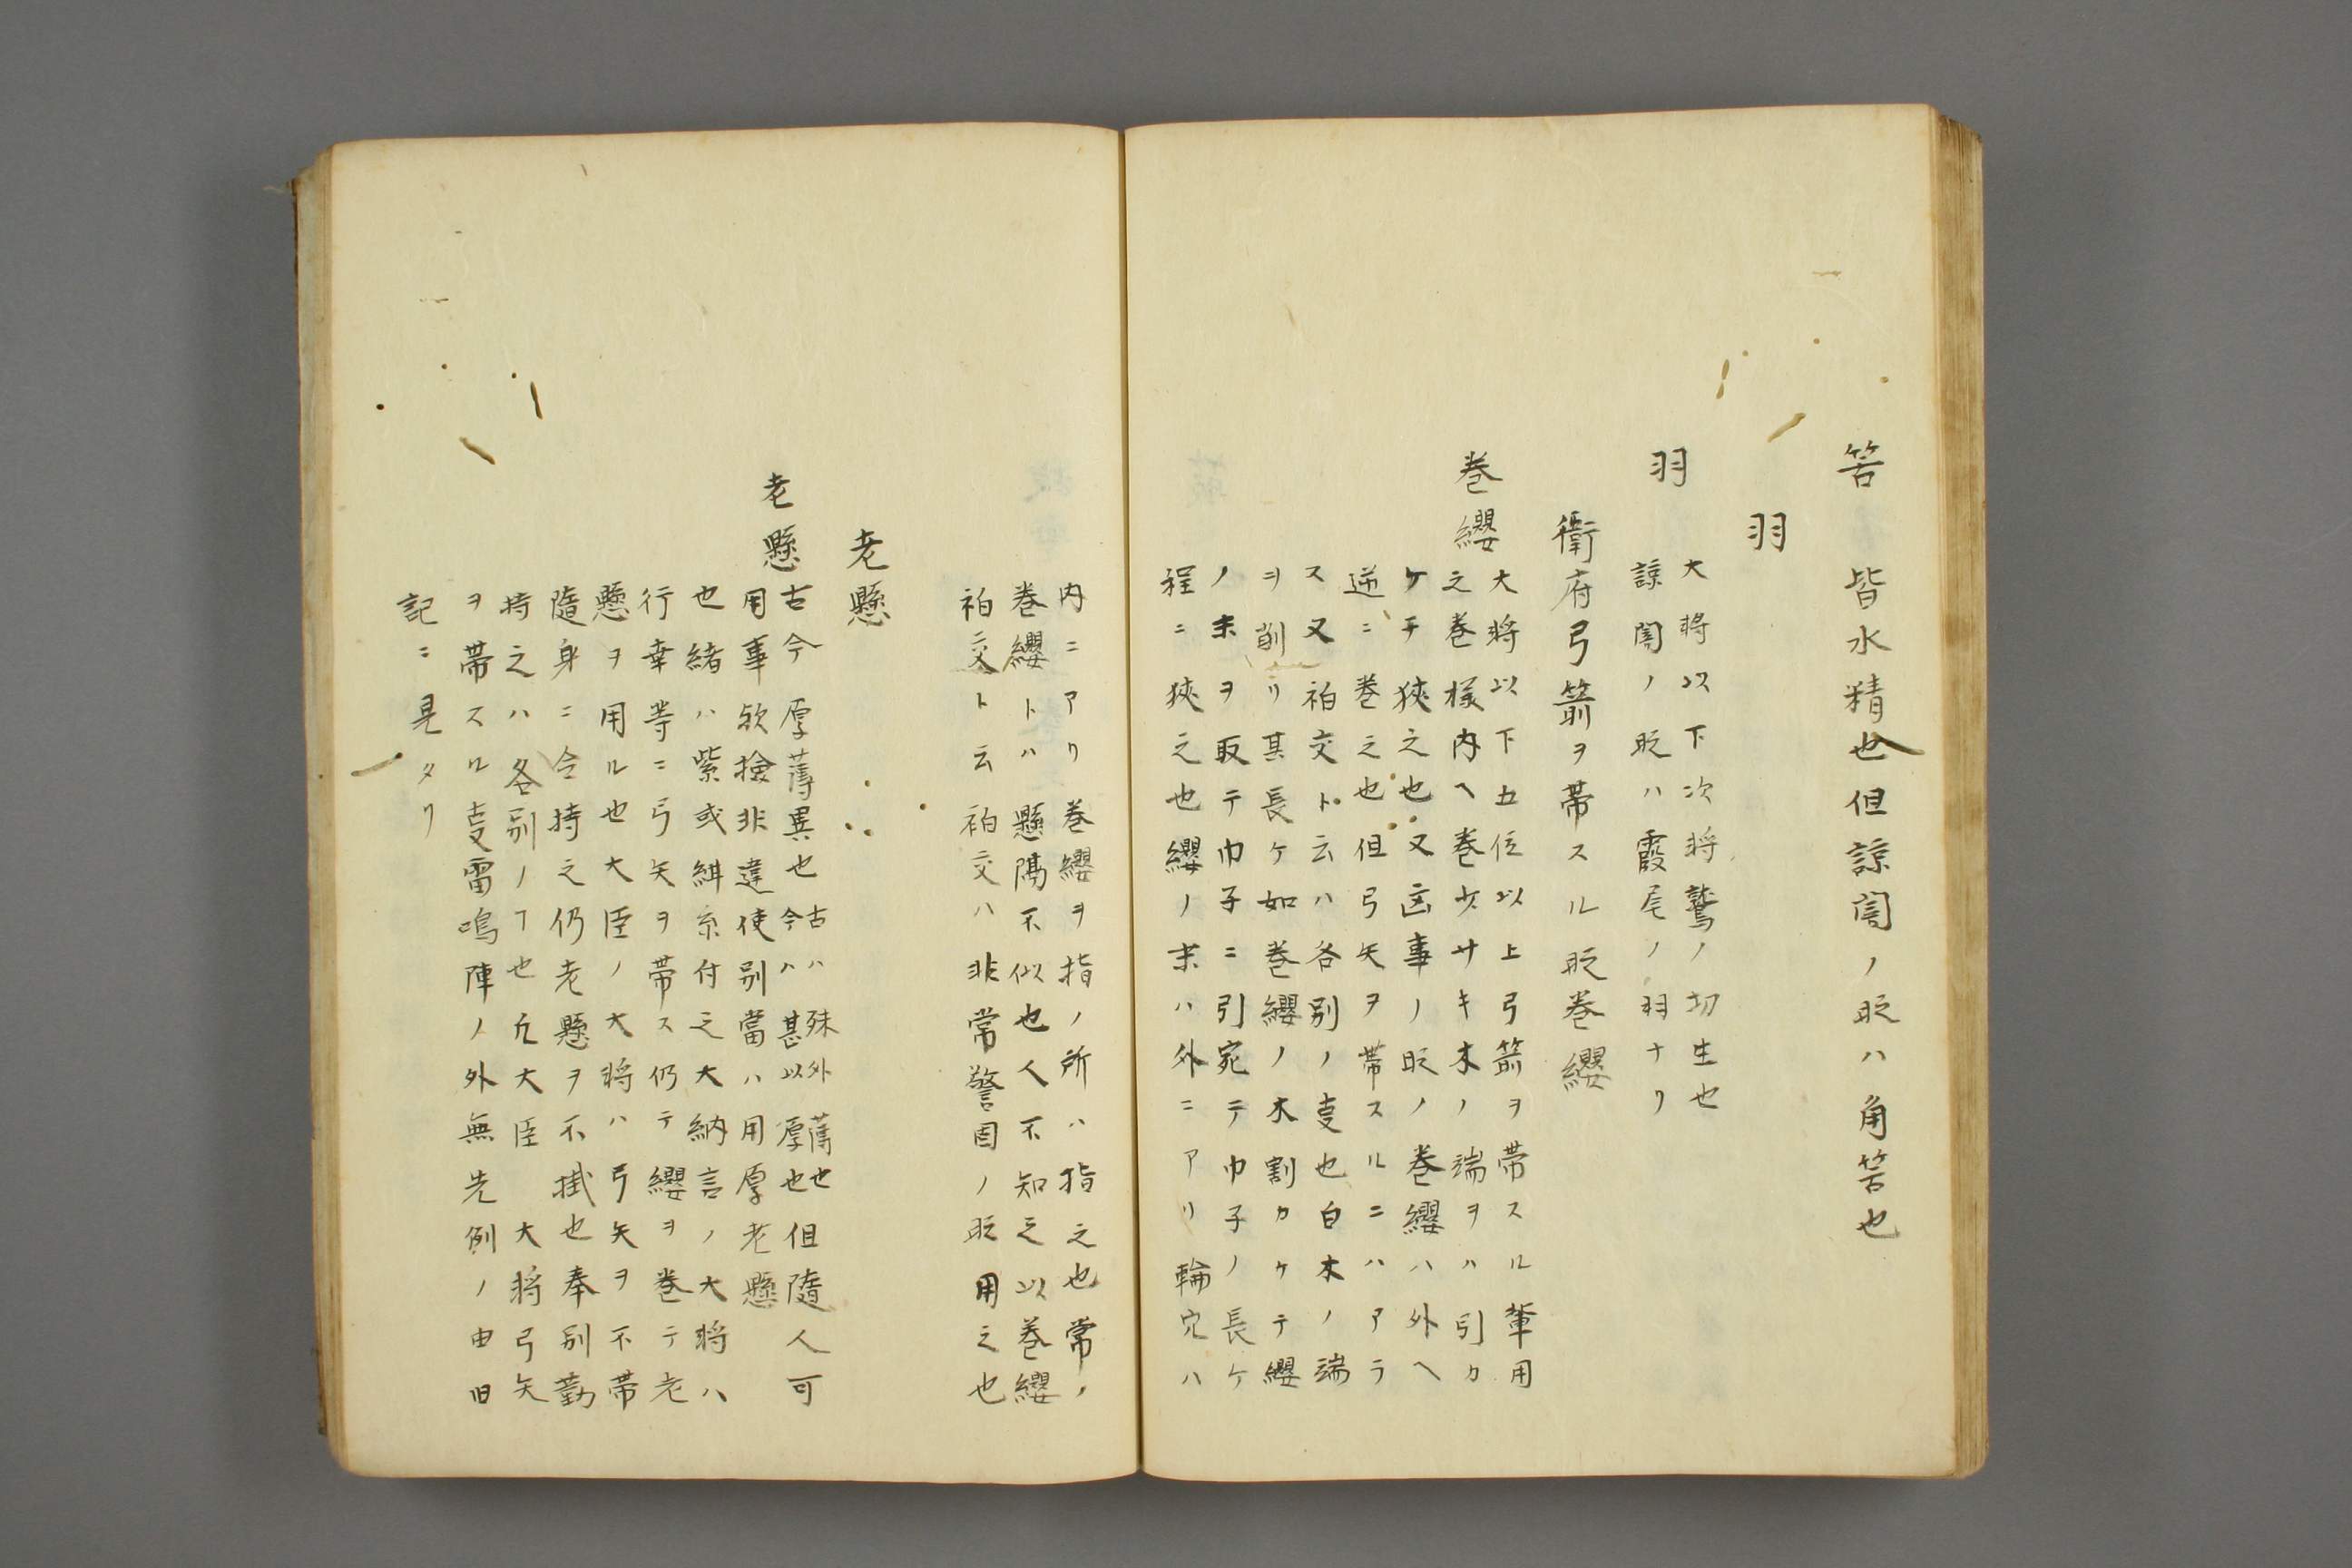 筈　皆水精也但諒闇ノ時ハ角筈也
羽
羽　大将以下次将鷲ノ切生也
諒闇ノ時ハ霞尾ノ羽ナリ
衛府弓箭ヲ帯スル時巻纓
巻纓　大将以下五位以上弓箭ヲ帯スル輩用
之巻様内ヘ巻少サキ木ノ端ヲハ引カ
ケテ狭之也又凶事ノ時ノ巻纓ハ外ヘ
逆ニ巻之也但弓矢ヲ帯スルニハアラ
ス又袙交ト云ハ各別ノ支也白木ノ端
ヲ削リ其長ケ如巻纓ノ木割カケテ纓
ノ末ヲ取テ巾子ニ引宛テ巾子ノ長ケ
程ニ狭之也纓ノ末ハ外ニアリ輪穴ハ
内ニアリ巻纓ヲ指ノ所ハ指之也常ノ
巻纓トハ懸隔不似也人不知之以巻纓
袙交ト云袙交ハ非常警固ノ時用之也
老懸
老懸　古今厚薄異也古ハ殊外薄也
今ハ甚以厚也但随人可
用事歟検非違使別當ハ用厚老懸
也緒ハ紫或緋糸付之大納言ノ大将ハ
行幸等ニ弓矢ヲ帯ス仍テ纓ヲ巻テ老
懸ヲ用ル也大臣ノ大将ハ弓矢ヲ不帯
随身ニ令持之仍老懸ヲ不掛也奉別勅
持之ハ各別ノ𠃍也凡大臣　大将弓矢
ヲ帯スル支雷鳴陣ノ外無先例ノ由旧
記ニ見タリ